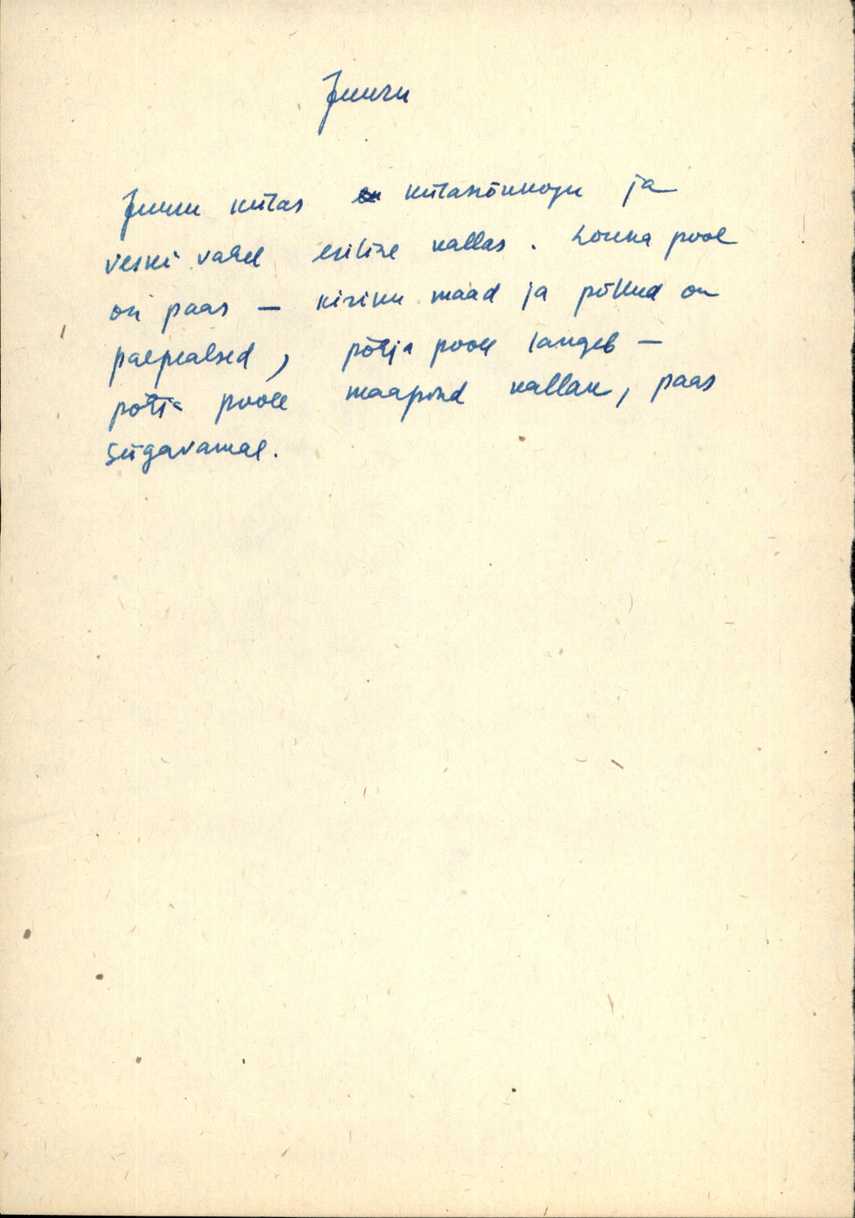 Juuru
Juuru külas on külanõukogu ja
veski vahel esiline kallas. Lõuna pool
on paas — kiriku maad ja põllud on
paepealsed, põhja poole langeb —
põhja poole maapind kallak, paas
sügavamal.